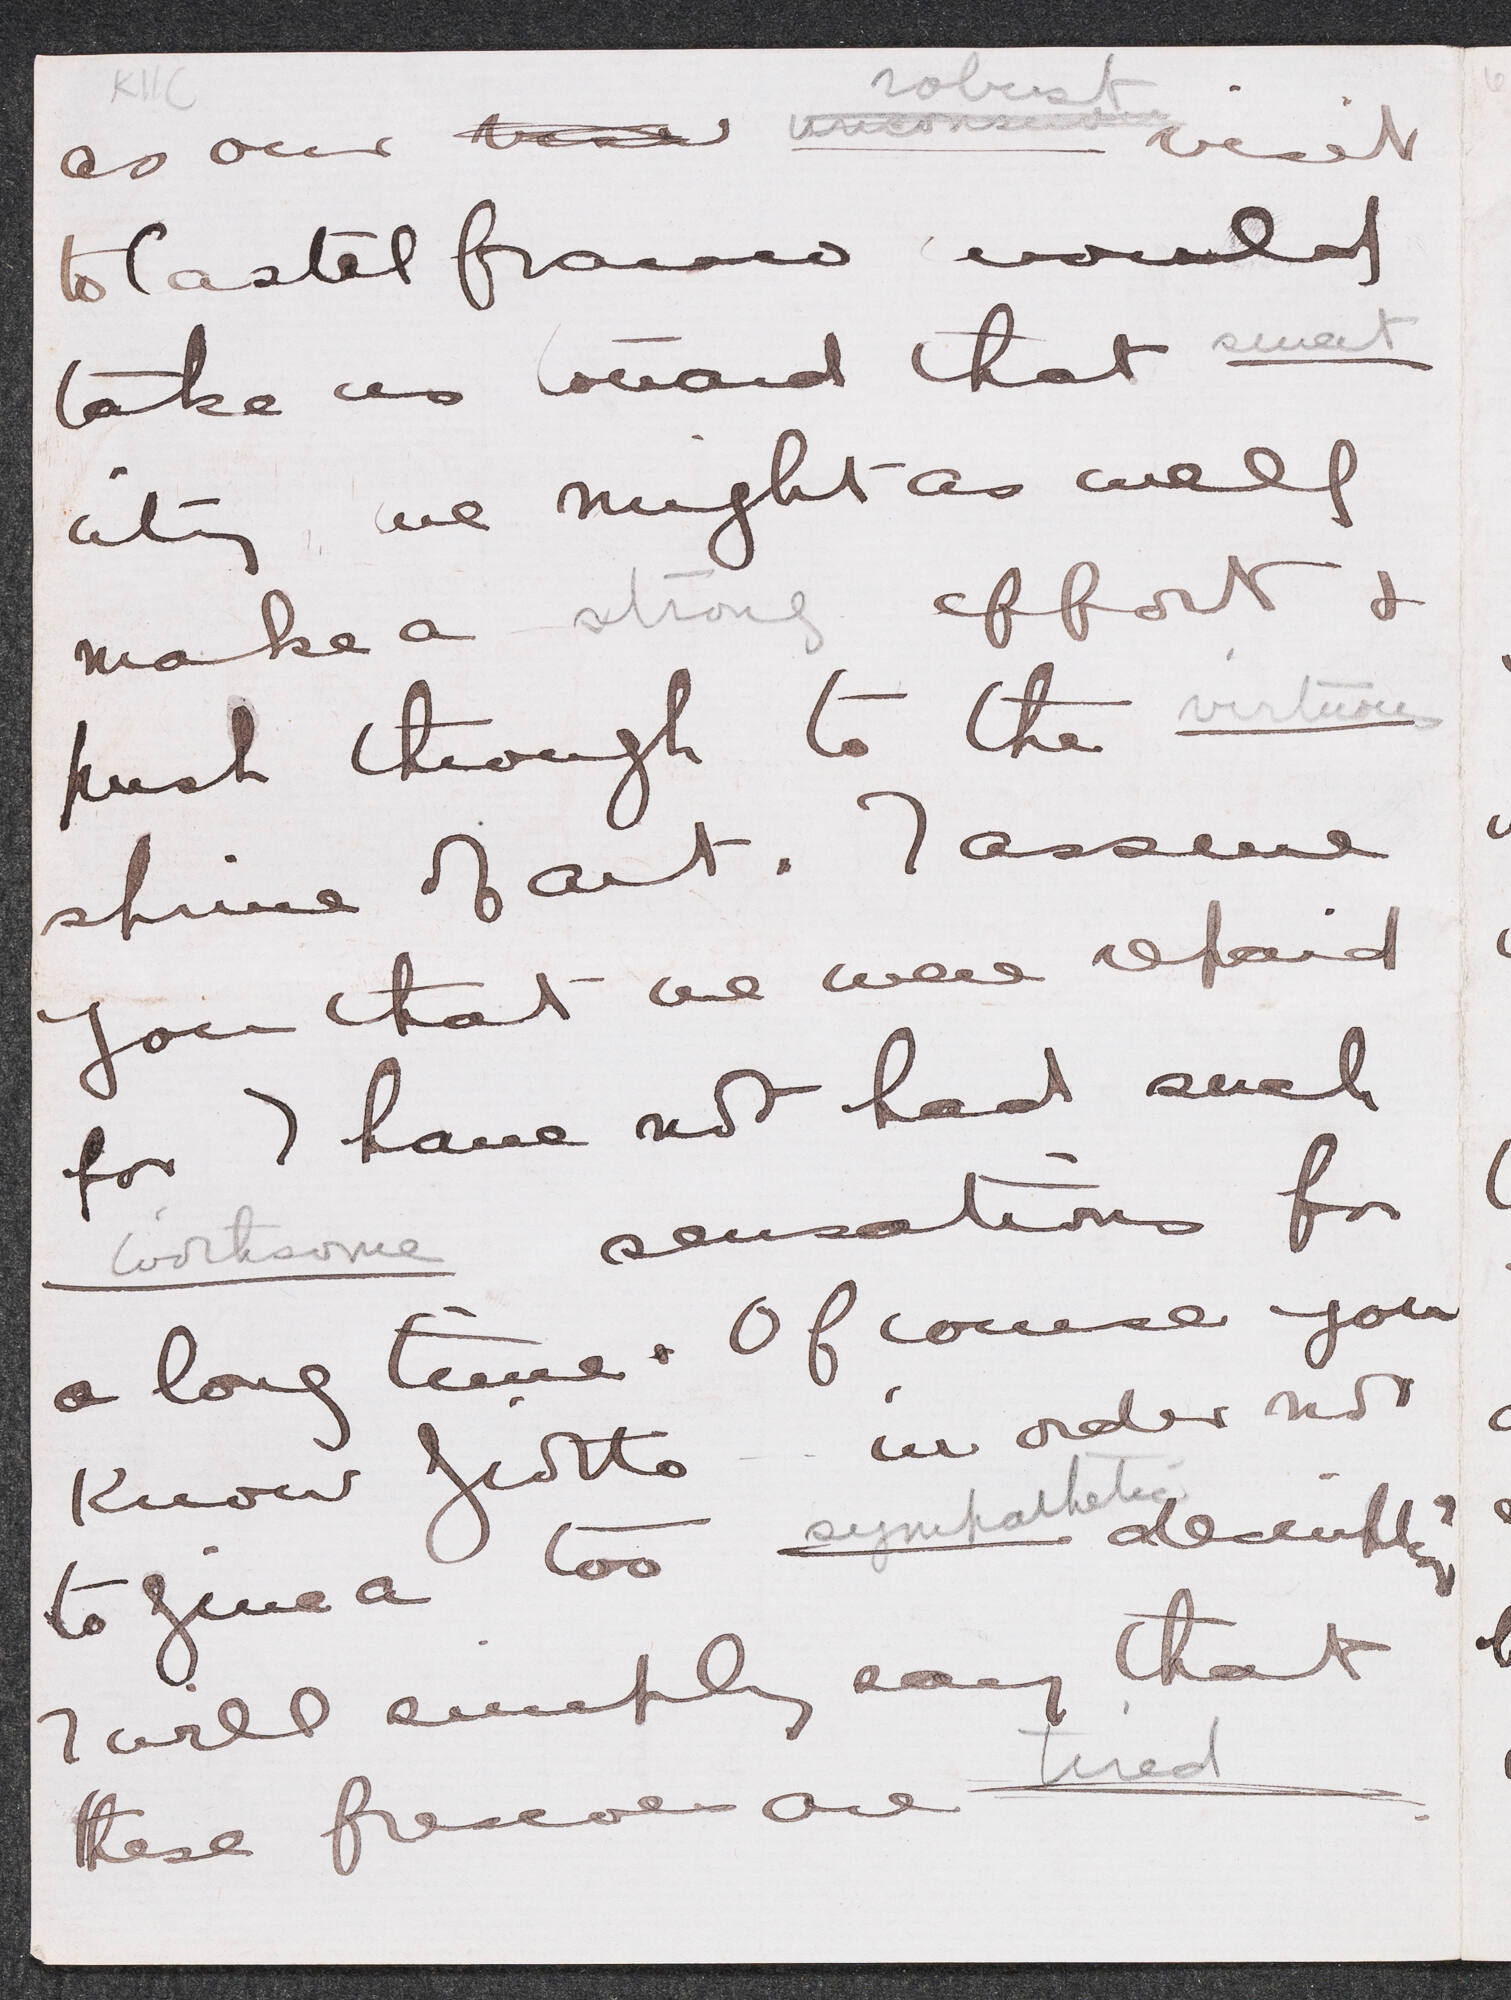 KHC
robust
as our view unconscious visit
to Castel franco would
take us toward that smart
city we might as well
make a strong effort &
push through to the virtuous
shrine of art. I assure
you that we were repaid
for I have not had such
worksome sensations for
a long time. Of course you
Know Giotto - in order not
to give a too sympathetic description
I will simply say that
these frescoes are tired.